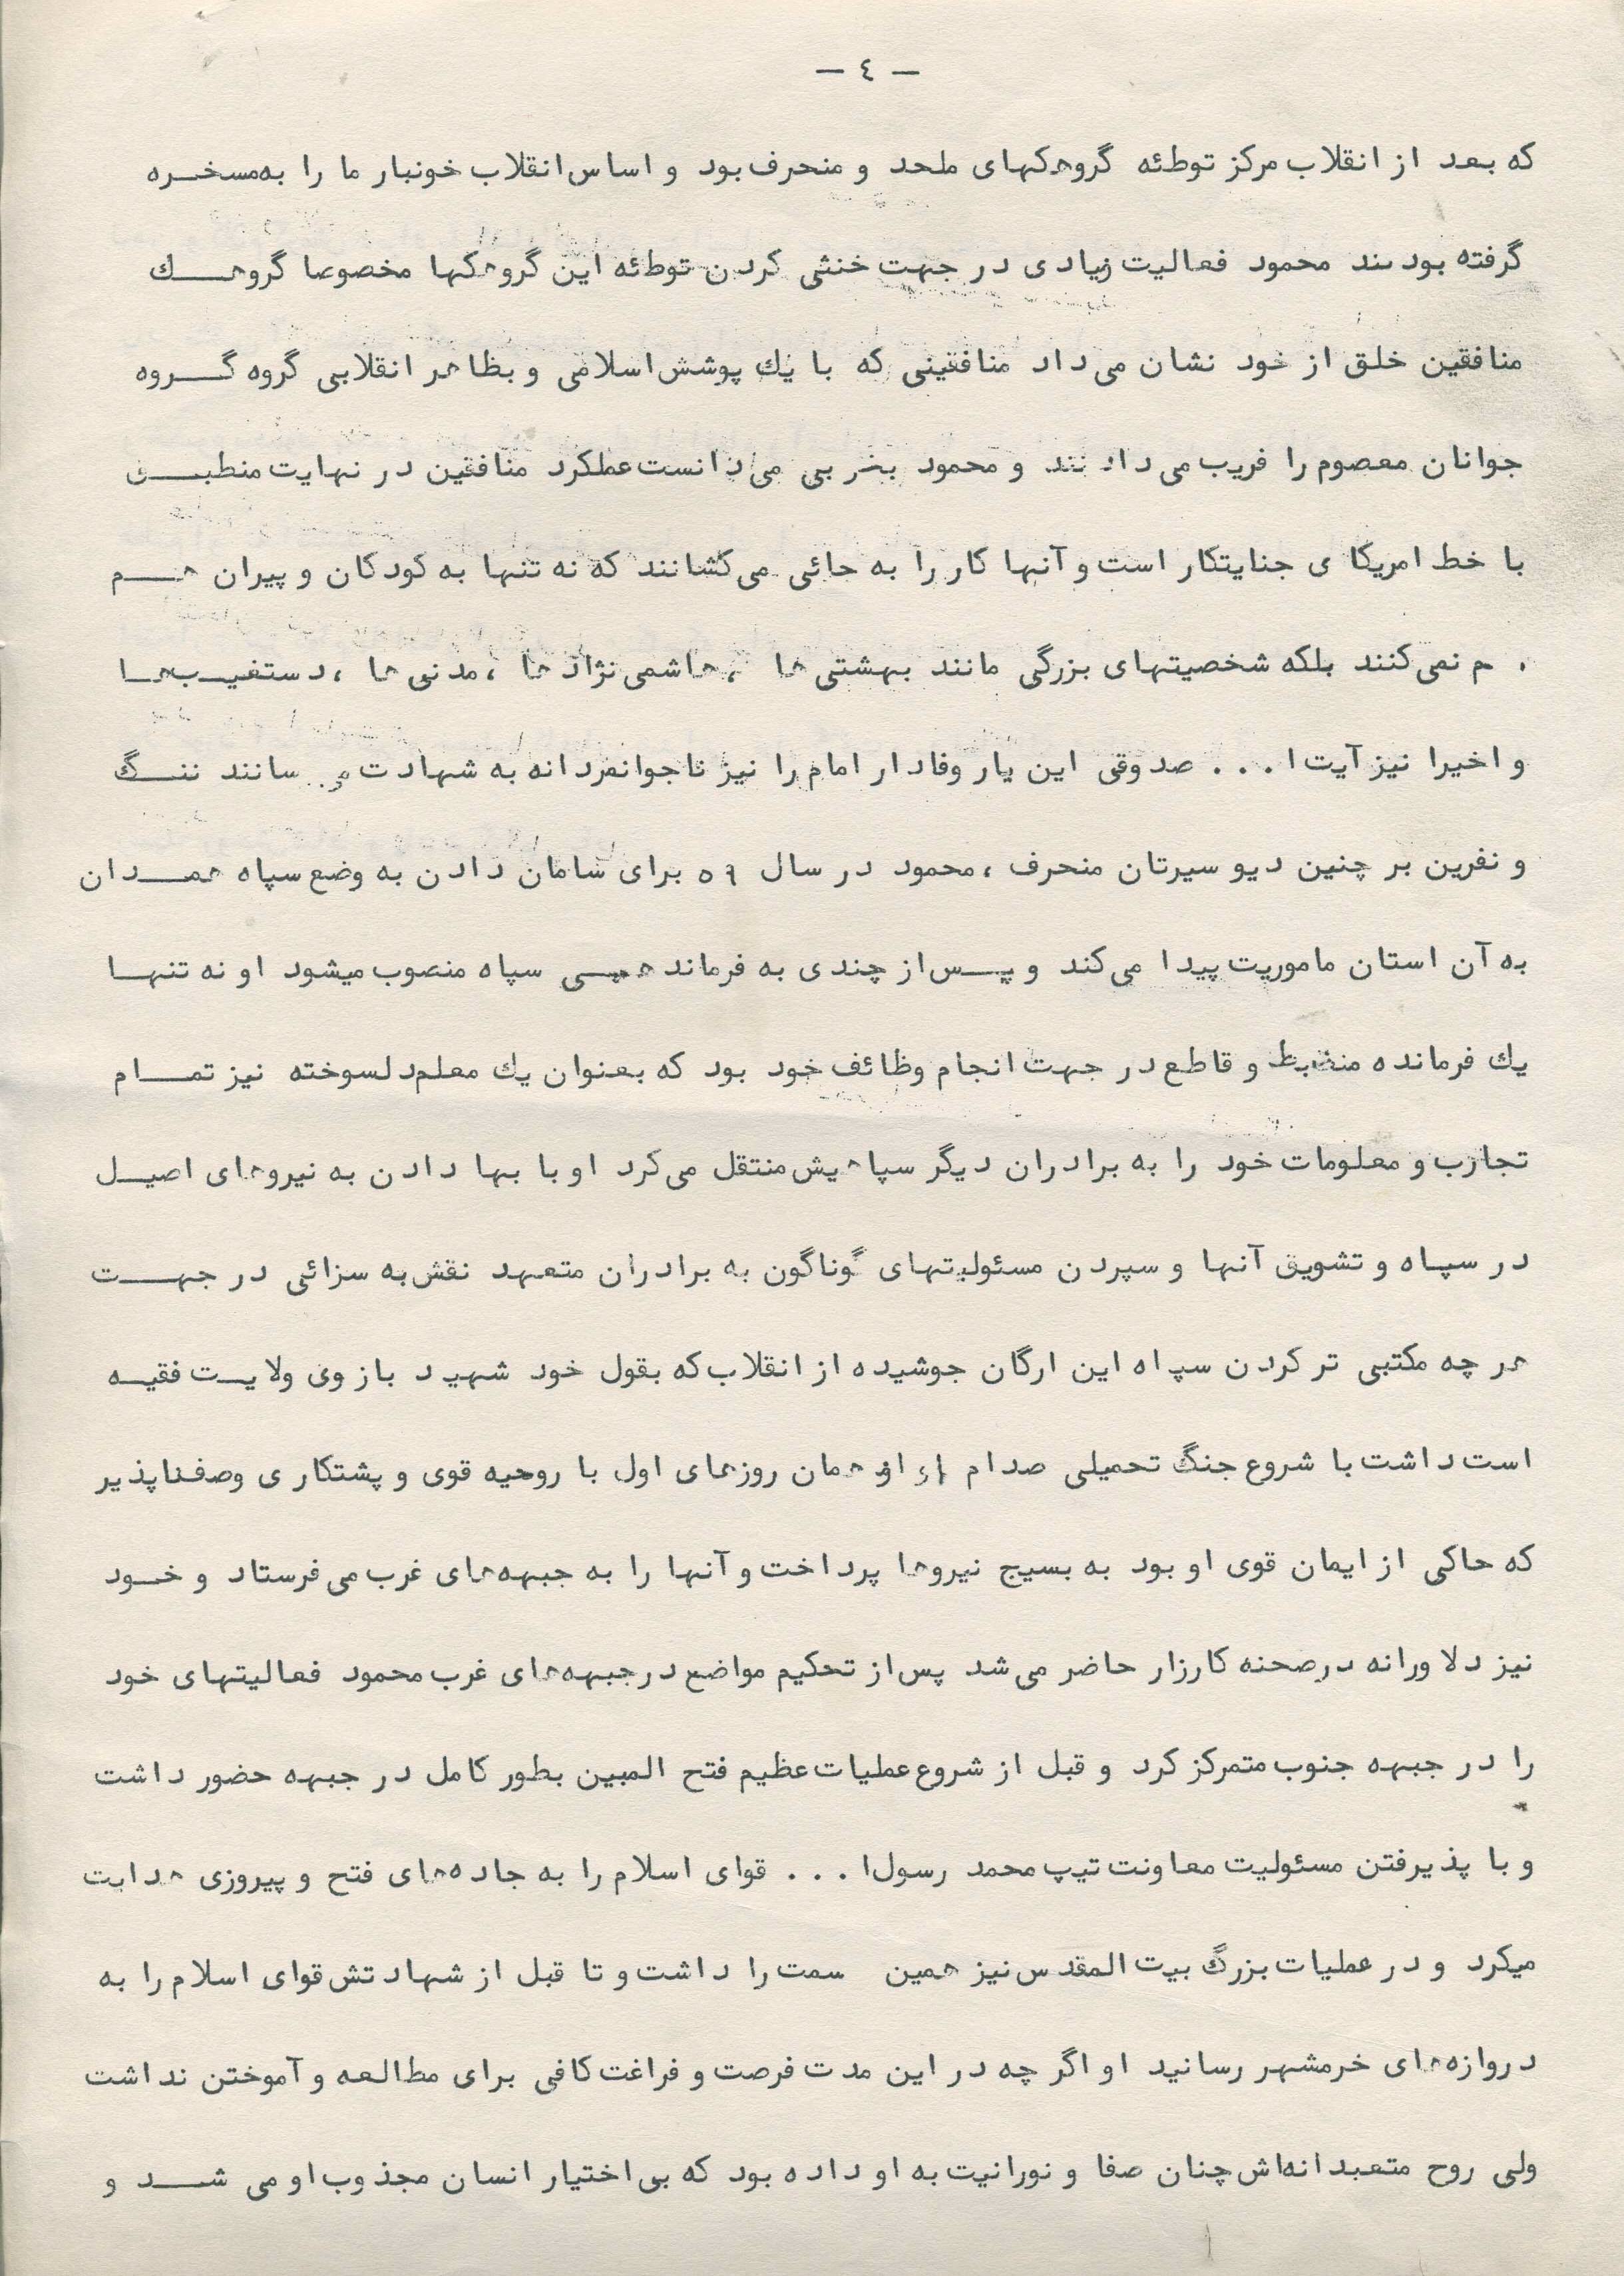 - ٤ -
که بعد از انقلاب مرکز توطئه گروهکهای ملحد و منحرف بود و اساس انقلاب خونبار ما را به مسخره
گرفته بودند محمود فعالیت زیادی در جهت خنثی کردن توطئه این گروهکها مخصوصا گروهک
منافقین خلق از خود نشان می‌داد منافقینی که با یک پوشش اسلامی و بظاهر انقلابی گروه گروه
جوانان معصوم را فریب می‌دادند و محمود بخوبی می‌دانست عملکرد منافقین در نهایت منطبق
با خط امریکای جنایتکار است و آنها کار را به جائی می‌کشانند که نه تنها به کودکان و پیران هم
نمی‌کنند بلکه شخصیتهای بزرگی مانند بهشتی‌ها ، هاشمی‌نژادها ، مدنی‌ها ، دستغیب‌ها
و اخیرا نیز آیت ا . . . صدوقی این یار وفادار امام را نیز ناجوانمردانه به شهادت می‌رسانند ننگ
و نفرین بر چنین دیو سیرتان منحرف ، محمود در سال ٥٩ برای سامان دادن به وضع سپاه همدان
به آن استان ماموریت پیدا می‌کند و پس از چندی به فرماندهی سپاه منصوب میشود او نه تنها
یک فرمانده منضبط و قاطع در جهت انجام وظائف خود بود که بعنوان یک معلم دلسوخته نیز تمام
تجارب و معلومات خود را به برادران دیگر سپاهیش منتقل می‌کرد او با بها دادن به نیروهای اصیل
در سپاه و تشویق آنها و سپردن مسئولیتهای گوناگون به برادران متعهد نقش به سزائی در جهت
هر چه مکتبی تر کردن سپاه این ارگان جوشیده از انقلاب که بقول خود شهید بازوی ولایت فقیه
است داشت با شروع جنگ تحمیلی صدام از همان روزهای اول با روحیه قوی و پشتکاری وصف‌ناپذیر
که حاکی از ایمان قوی او بود به بسیج نیروها پرداخت و آنها را به جبهه‌های غرب می‌فرستاد و خود
نیز دلاورانه در صحنه کارزار حاضر می‌شد پس از تحکیم مواضع در جبهه‌های غرب محمود فعالیتهای خود
را در جبهه جنوب متمرکز کرد و قبل از شروع عملیات عظیم فتح المبین بطور کامل در جبهه حضور داشت
و با پذیرفتن مسئولیت معاونت تیپ محمد رسول ا . . . قوای اسلام را به جاده‌های فتح و پیروزی هدایت
میکرد و در عملیات بزرگ بیت المقدس نیز همین سمت را داشت و تا قبل از شهادتش قوای اسلام را به
دروازه‌های خرمشهر رسانید او اگر چه در این مدت فرصت و فراغت کافی برای مطالعه و آموختن نداشت
ولی روح متعبدانه‌اش چنان صفا و نورانیت به او داده بود که بی‌اختیار انسان مجذوب او می شد و